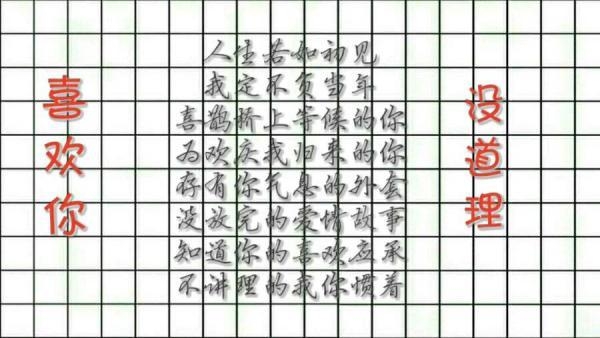 喜欢你
人生若如初见
我定不负当年
喜鹊桥上等候的你
为欢庆我归来的你
存有你气息的外套
没放完的爱情故事
知道你的喜欢应承
不讲理的我你惯着
没道理